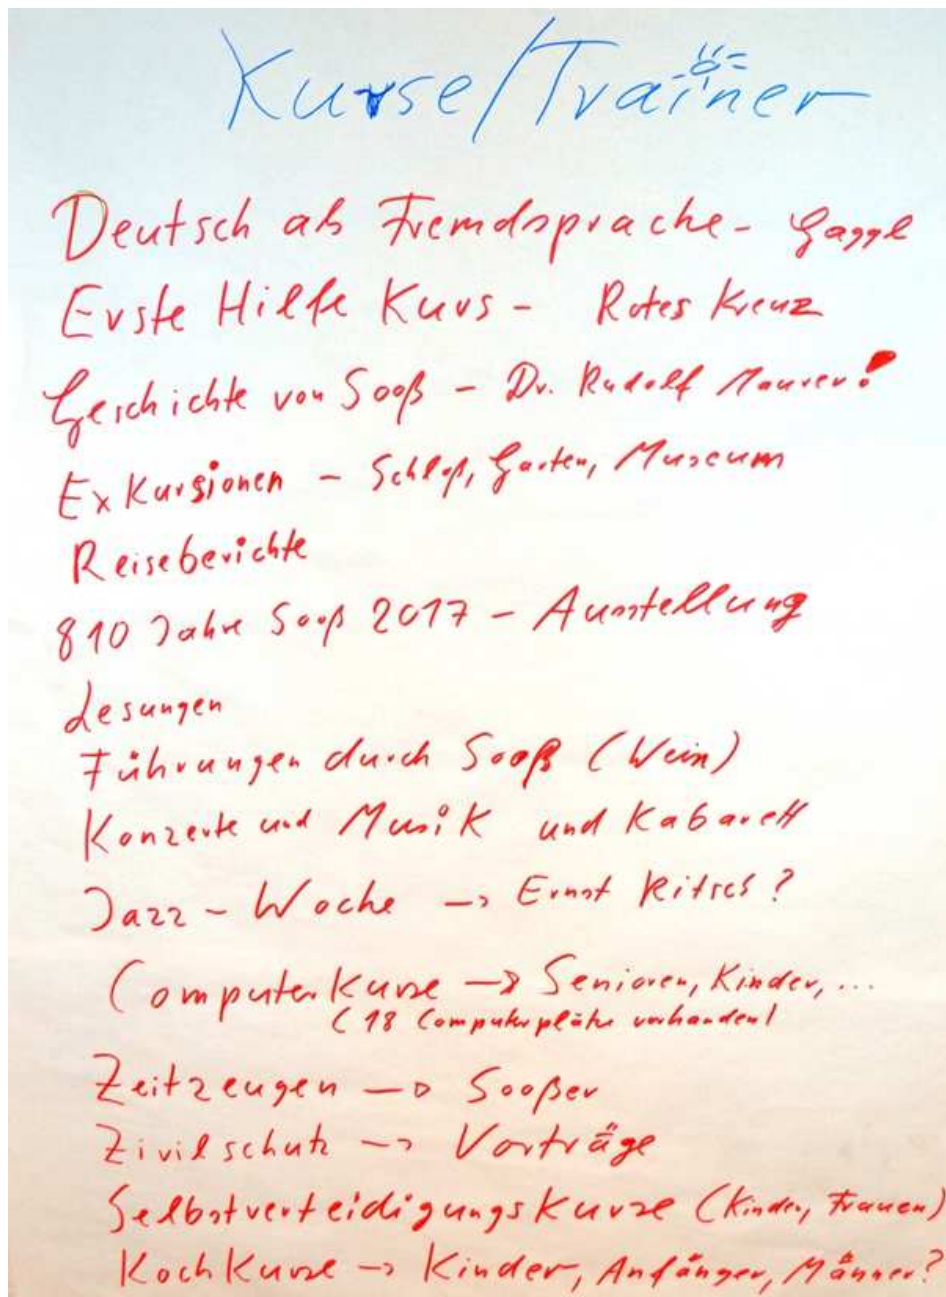 Kurse/Trainer
Deutsch als Fremdsprache - Gaggl
Erste Hilfe Kurs - Rotes Kreuz
Geschichte von Sooß - Dr. Rudolf Maurer!
Exkursionen - Schloß, Garten, Museum
Reiseberichte
810 Jahre Sooß 2017 - Ausstellung
Lesungen
Führungen durch Sooß (Wein)
Konzerte und Musik und Kabarett
Jazz-Woche -> Ernst ?
Computerkurse -> Senioren, Kinder, ...
(18 Computerplätze vorhanden)
Zeitzeugen -> Sooßer
Zivilschutz -> Vorträge
Selbstverteidigungskurse (Kinder, Frauen)
Kochkurse -> Kinder, Anfänger, Männer?